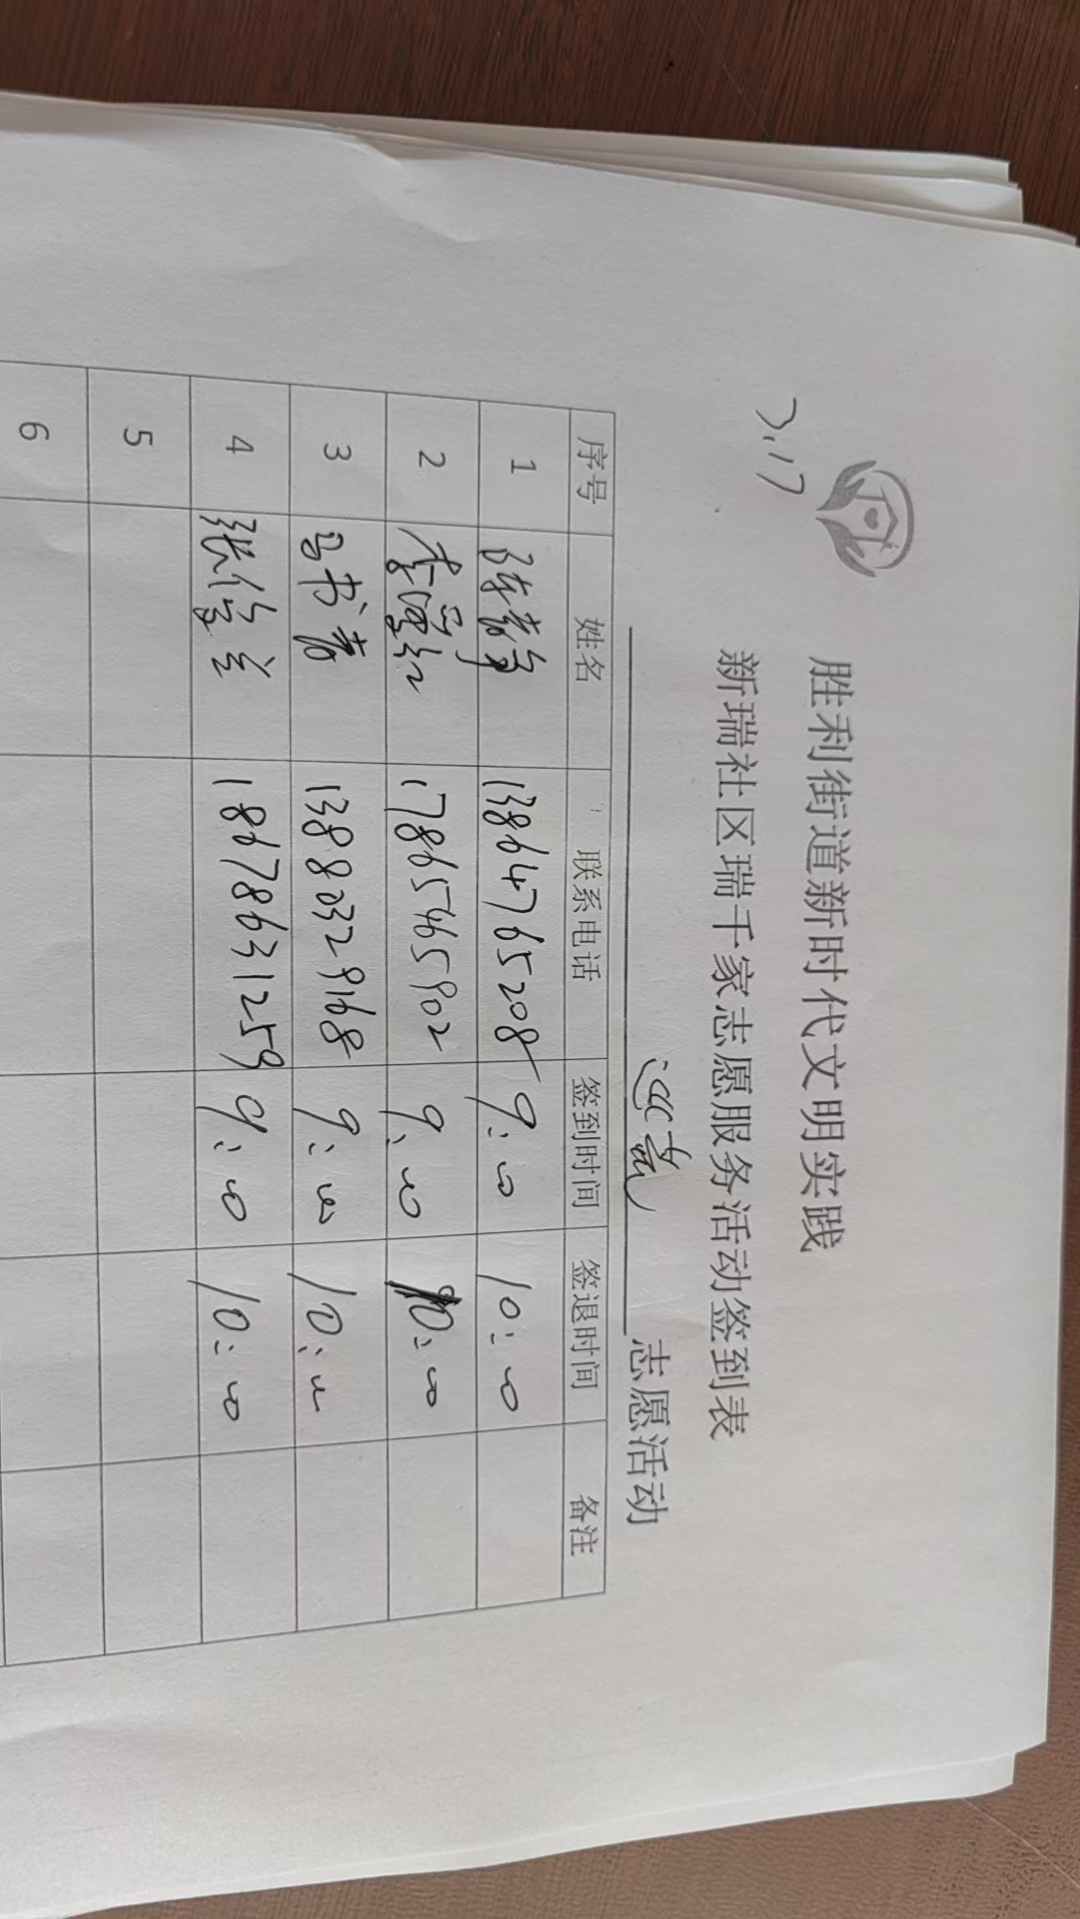 3.17
胜利街道新时代文明实践
新瑞社区瑞千家志愿服务活动签到表
志愿活动
序号 姓名 联系电话 签到时间 签退时间 备注
1 13864765208 9:00 10:00
2 17865465902 9:00 10:00
3 马书春 13880329168 9:00 10:00
4 张修兰 18678631259 9:00 10:00
5
6